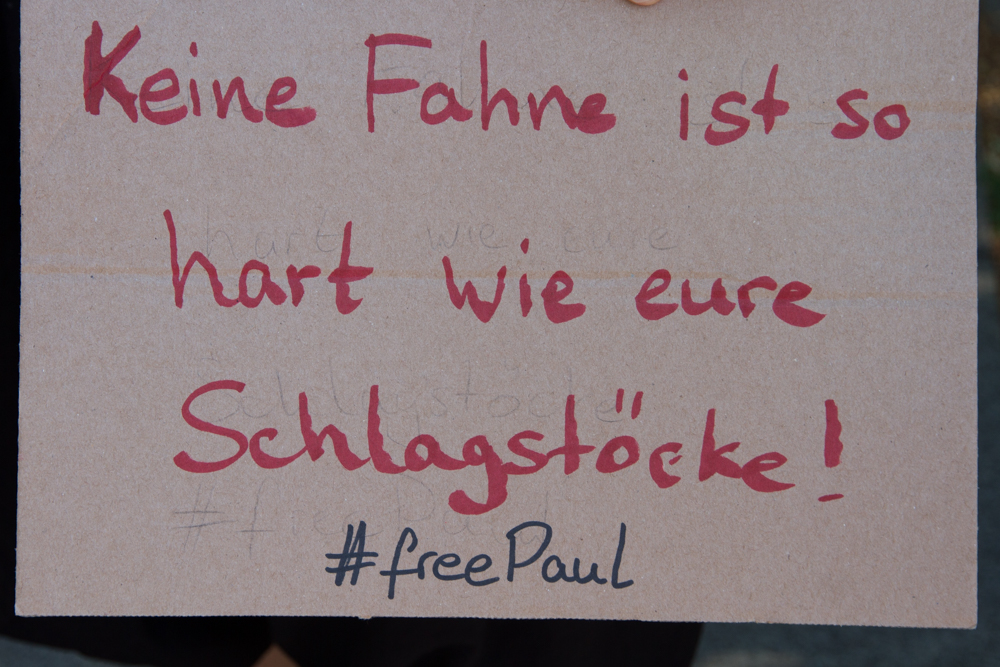 Keine Fahne ist so
hart wie eure
Schlagstöcke!
#freePaul